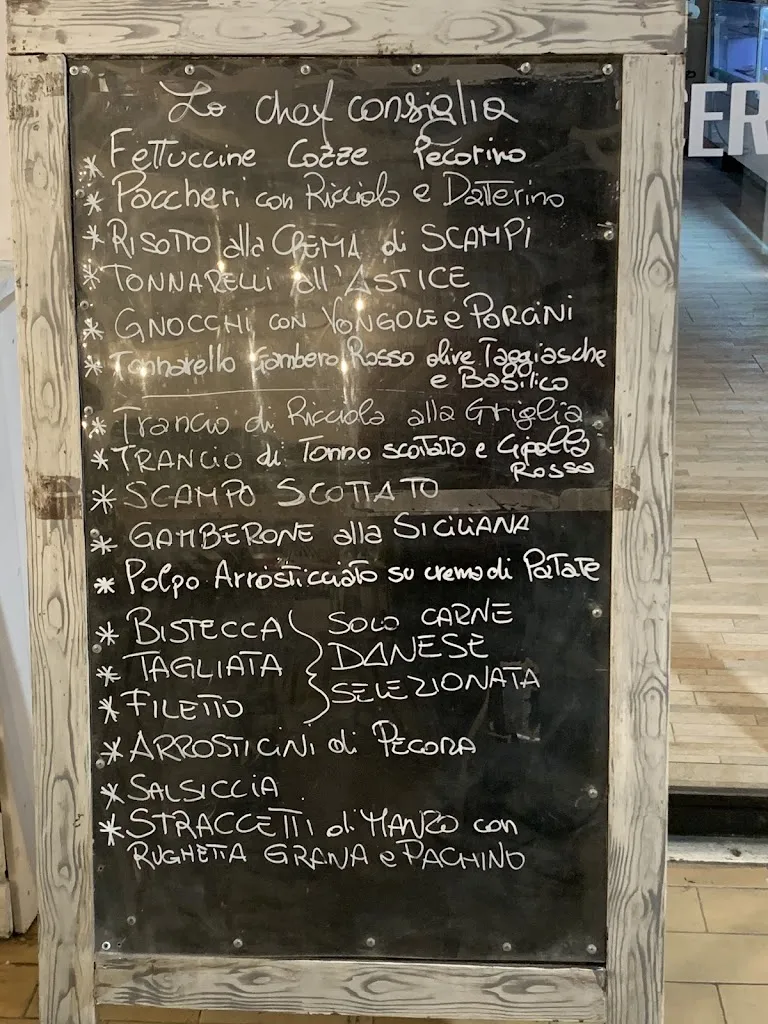 Lo chef consiglia
* Fettuccine Cozze Pecorino
* Paccheri con Ricciola e Datterino
* RISOTTO alla CREMA di SCAMPI
* TONNARELLI all'ASTICE
* GNOCCHI CON VONGOLE e PORCINI
* Tonnarello Gambero Rosso olive Taggiasche
e Basilico
* Trancio di Ricciola alla Griglia
* TRANCIO di Tonno scottato e Cipolla
Rossa
* SCAMPO SCOTTATO
* GAMBERONE alla SICILIANA
* Polpo Arrosticciato su crema di Patate
* BISTECCA } SOLO CARNE
* TAGLIATA DANESE
* FILETTO SELEZIONATA
* ARROSTICINI di PECORA
* SALSICCIA
* STRACCETTI di MANZO con
RUGHETTA GRANA e PACHINO
CER